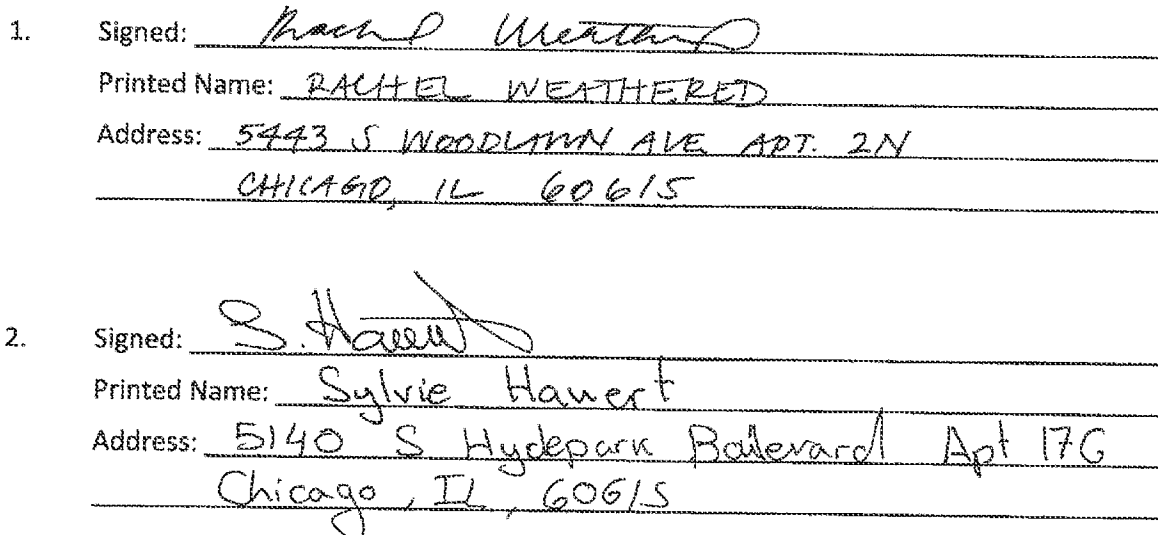 1. Signed: Rachel Weathered
Printed Name: RACHEL WEATHERED
Address: 5443 S WOODLAWN AVE APT. 2N
CHICAGO, IL 60615
2. Signed: S. Hauert
Printed Name: Sylvie Hauert
Address: 5140 S Hydepark Boulevard Apt 17G
Chicago, IL, 60615